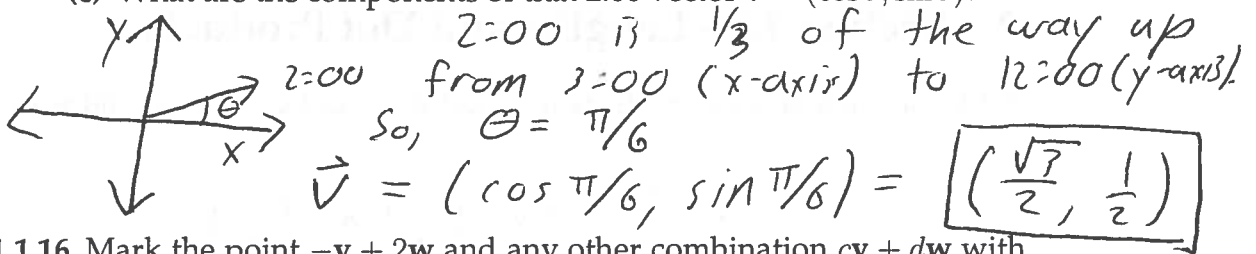 Y 2:00 is 1/3 of the way up
2:00 from 3:00 (x-axis) to 12:00 (y-axis).
θ So, θ = π/6
X
v⃗ = (cos π/6, sin π/6) = (√3/2, 1/2)
1.16 Mark the point −v + 2w and any other combination cv + dw with